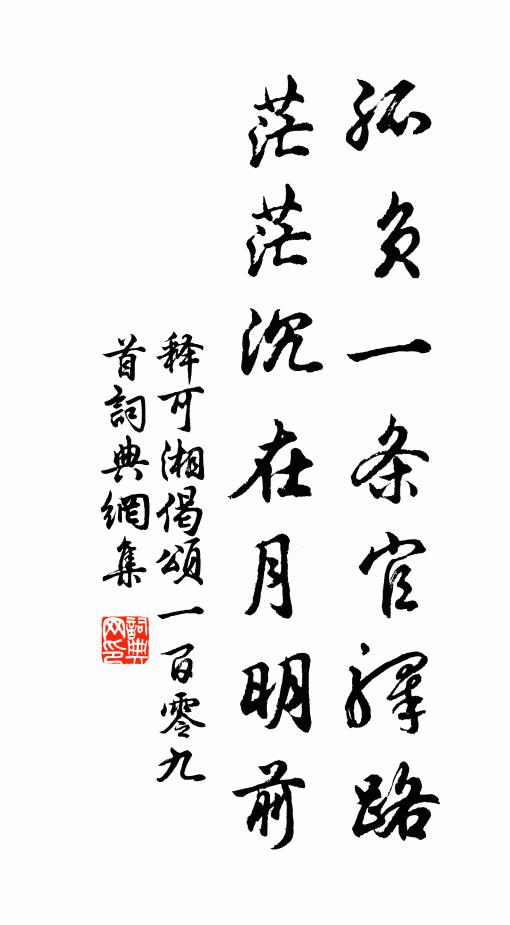 孤负一条官驿路
茫茫沉在月明前
释可湘偈颂一百零九
首词典網集
詞典网印